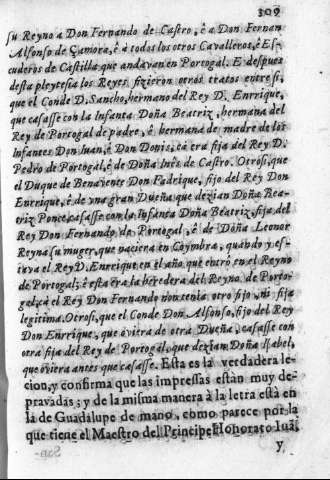 309
su Reyno a Don Fernando de Castro, è a Don Fernan
Alfonso de Zamora, è à todos los otros Cavalleros, è Es-
cuderos de Castilla que andavan en Portogal. E despues
desta pleytesia los Reyes fizieron otros tratos entre si,
que el Conde D. Sancho, hermano del Rey D. Enrrique,
que casasse con la Infanta Doña Beatriz, hermana del
Rey de Portogal de padre, è hermana de madre de los
Infantes Don Iuan, è Don Donis, cà era fija del Rey D.
Pedro de Portogal, è de Doña Inès de Castro. Otrosi, que
el Duque de Benavente Don Fadrique, fijo del Rey Don
Enrrique, è de vna gran Dueña que dezian Doña Bea-
triz Ponce, casasse con la Infanta Doña Beatriz, fija del
Rey Don Fernando de Portogal, è de Doña Leonor
Reyna su muger, que naciera en Coymbra, quando y es-
tuva el Rey D. Enrrique en el año que entrò en el Reyno
de Portogal; è esta era la heredera del Reyno de Porto-
gal, cà el Rey Don Fernando non tenia otro fijo, ni fija
legitima. Otrosi, que el Conde Don Alfonso, fijo del Rey
Don Enrrique, que òviera de otra Dueña, casasse con
otra fija del Rey de Portogal, que dezian Doña Isabel,
que òviera antes que casasse. Esta es la verdadera le-
cion, y confirma que las impressas estàn muy de-
pravadas; y de la misma manera à la letra està en
la de Guadalupe de mano, como parece por la
que tiene el Maestro del Principe Honorato Iuã,
y